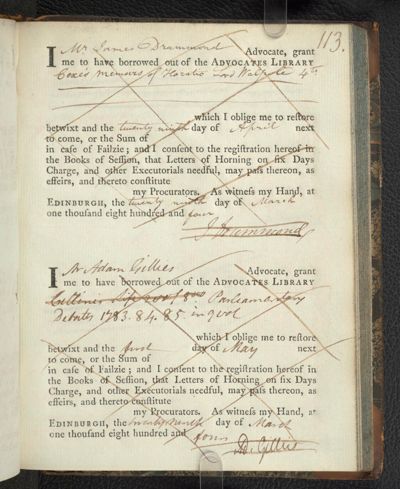 113.
I Mr James Drummond Advocate, grant
me to have borrowed out of the ADVOCATES LIBRARY
Coxe's memoirs of Horatio Lord Walpole 4to
which I oblige me to reſtore
betwixt and the twenty ninth day of April next
to come, or the Sum of
in caſe of Failzie; and I conſent to the regiſtration hereof in
the Books of Seſſion, that Letters of Horning on ſix Days
Charge, and other Executorials needful, may paſs thereon, as
effeirs, and thereto conſtitute
my Procurators. As witneſs my Hand, at
EDINBURGH, the twenty ninth day of March
one thouſand eight hundred and four
J Drummond
I Mr Adam Gillies Advocate, grant
me to have borrowed out of the ADVOCATES LIBRARY
Parliamentary
Debates 1783. 84. 85. in 9 vol
which I oblige me to reſtore
betwixt and the first day of May next
to come, or the Sum of
in caſe of Failzie; and I conſent to the regiſtration hereof in
the Books of Seſſion, that Letters of Horning on ſix Days
Charge, and other Executorials needful, may paſs thereon, as
effeirs, and thereto conſtitute
my Procurators. As witneſs my Hand, at
EDINBURGH, the twenty ninth day of March
one thouſand eight hundred and four
Ad. Gillies